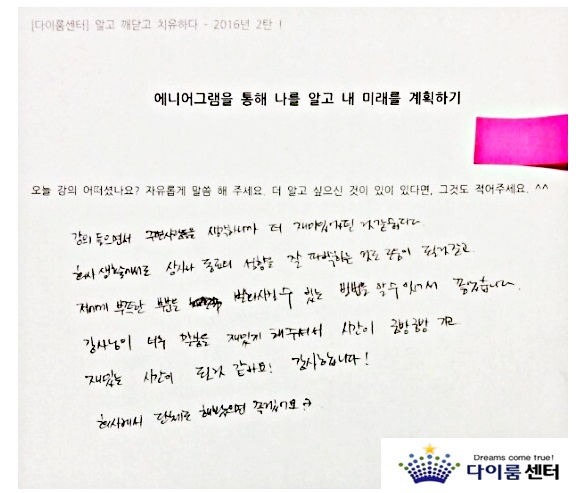 [다이룸센터] 알고 깨닫고 치유하다 - 2016년 2탄 !
에니어그램을 통해 나를 알고 내 미래를 계획하기
오늘 강의 어떠셨나요? 자유롭게 말씀 해 주세요. 더 알고 싶으신 것이 있이 있다면, 그것도 적어주세요. ^^
강의 들으면서 주변사람들을 생각하니까 더 재미있었던 것 같습니다.
회사생활에서도 상사나 동료의 성향을 잘 파악하는 것도 도움이 될것같고
저에게 부족한 부분을 발전시킬 수 있는 방법을 알 수 있어서 좋았습니다.
강사님이 너무 말씀을 재밌게 해주셔서 시간이 금방금방 가고
재밌는 시간이 된것 같아요! 감사합니다!
회사에서 단체로 해봤으면 좋겠어요
Dreams come true!
다이룸센터